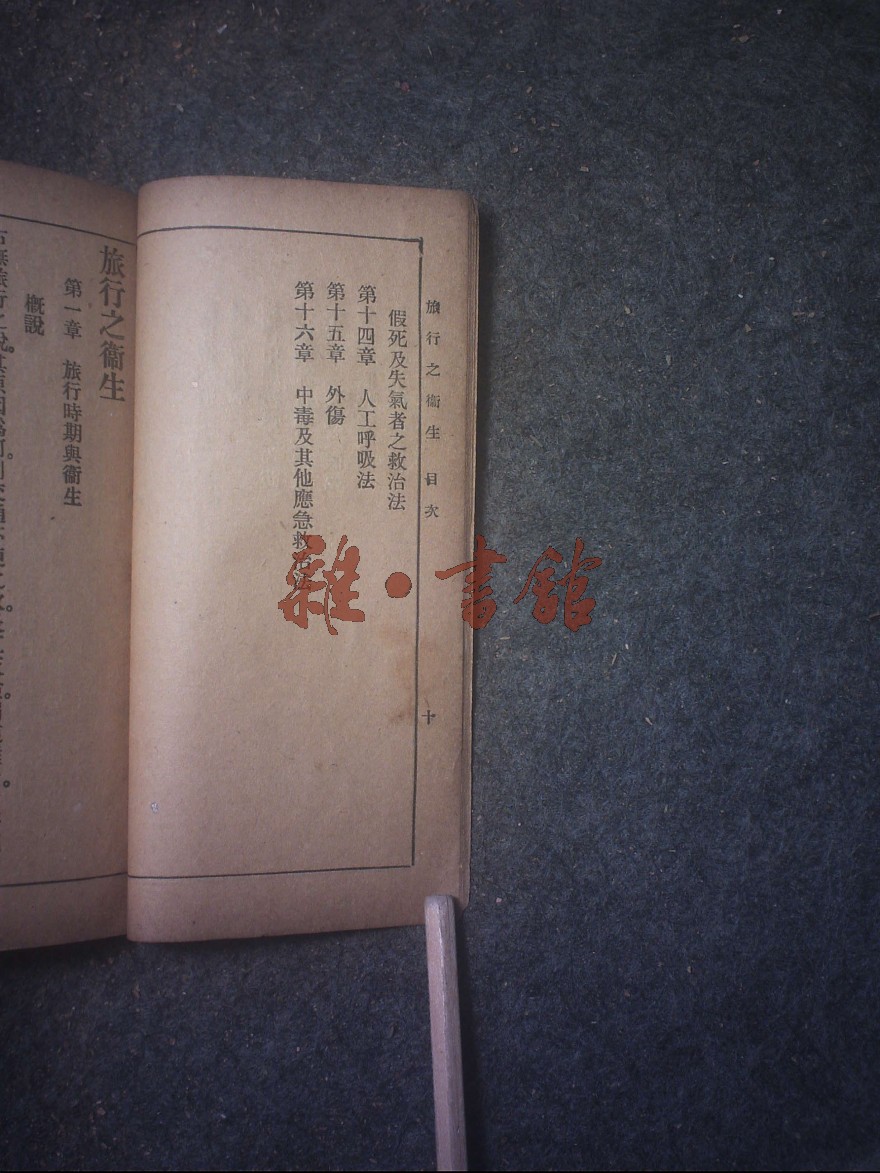 旅行之衞生 目次 十
假死及失氣者之救治法
第十四章 人工呼吸法
第十五章 外傷
第十六章 中毒及其他應急救治法
旅行之衞生
第一章 旅行時期與衞生
概說
雜·書館